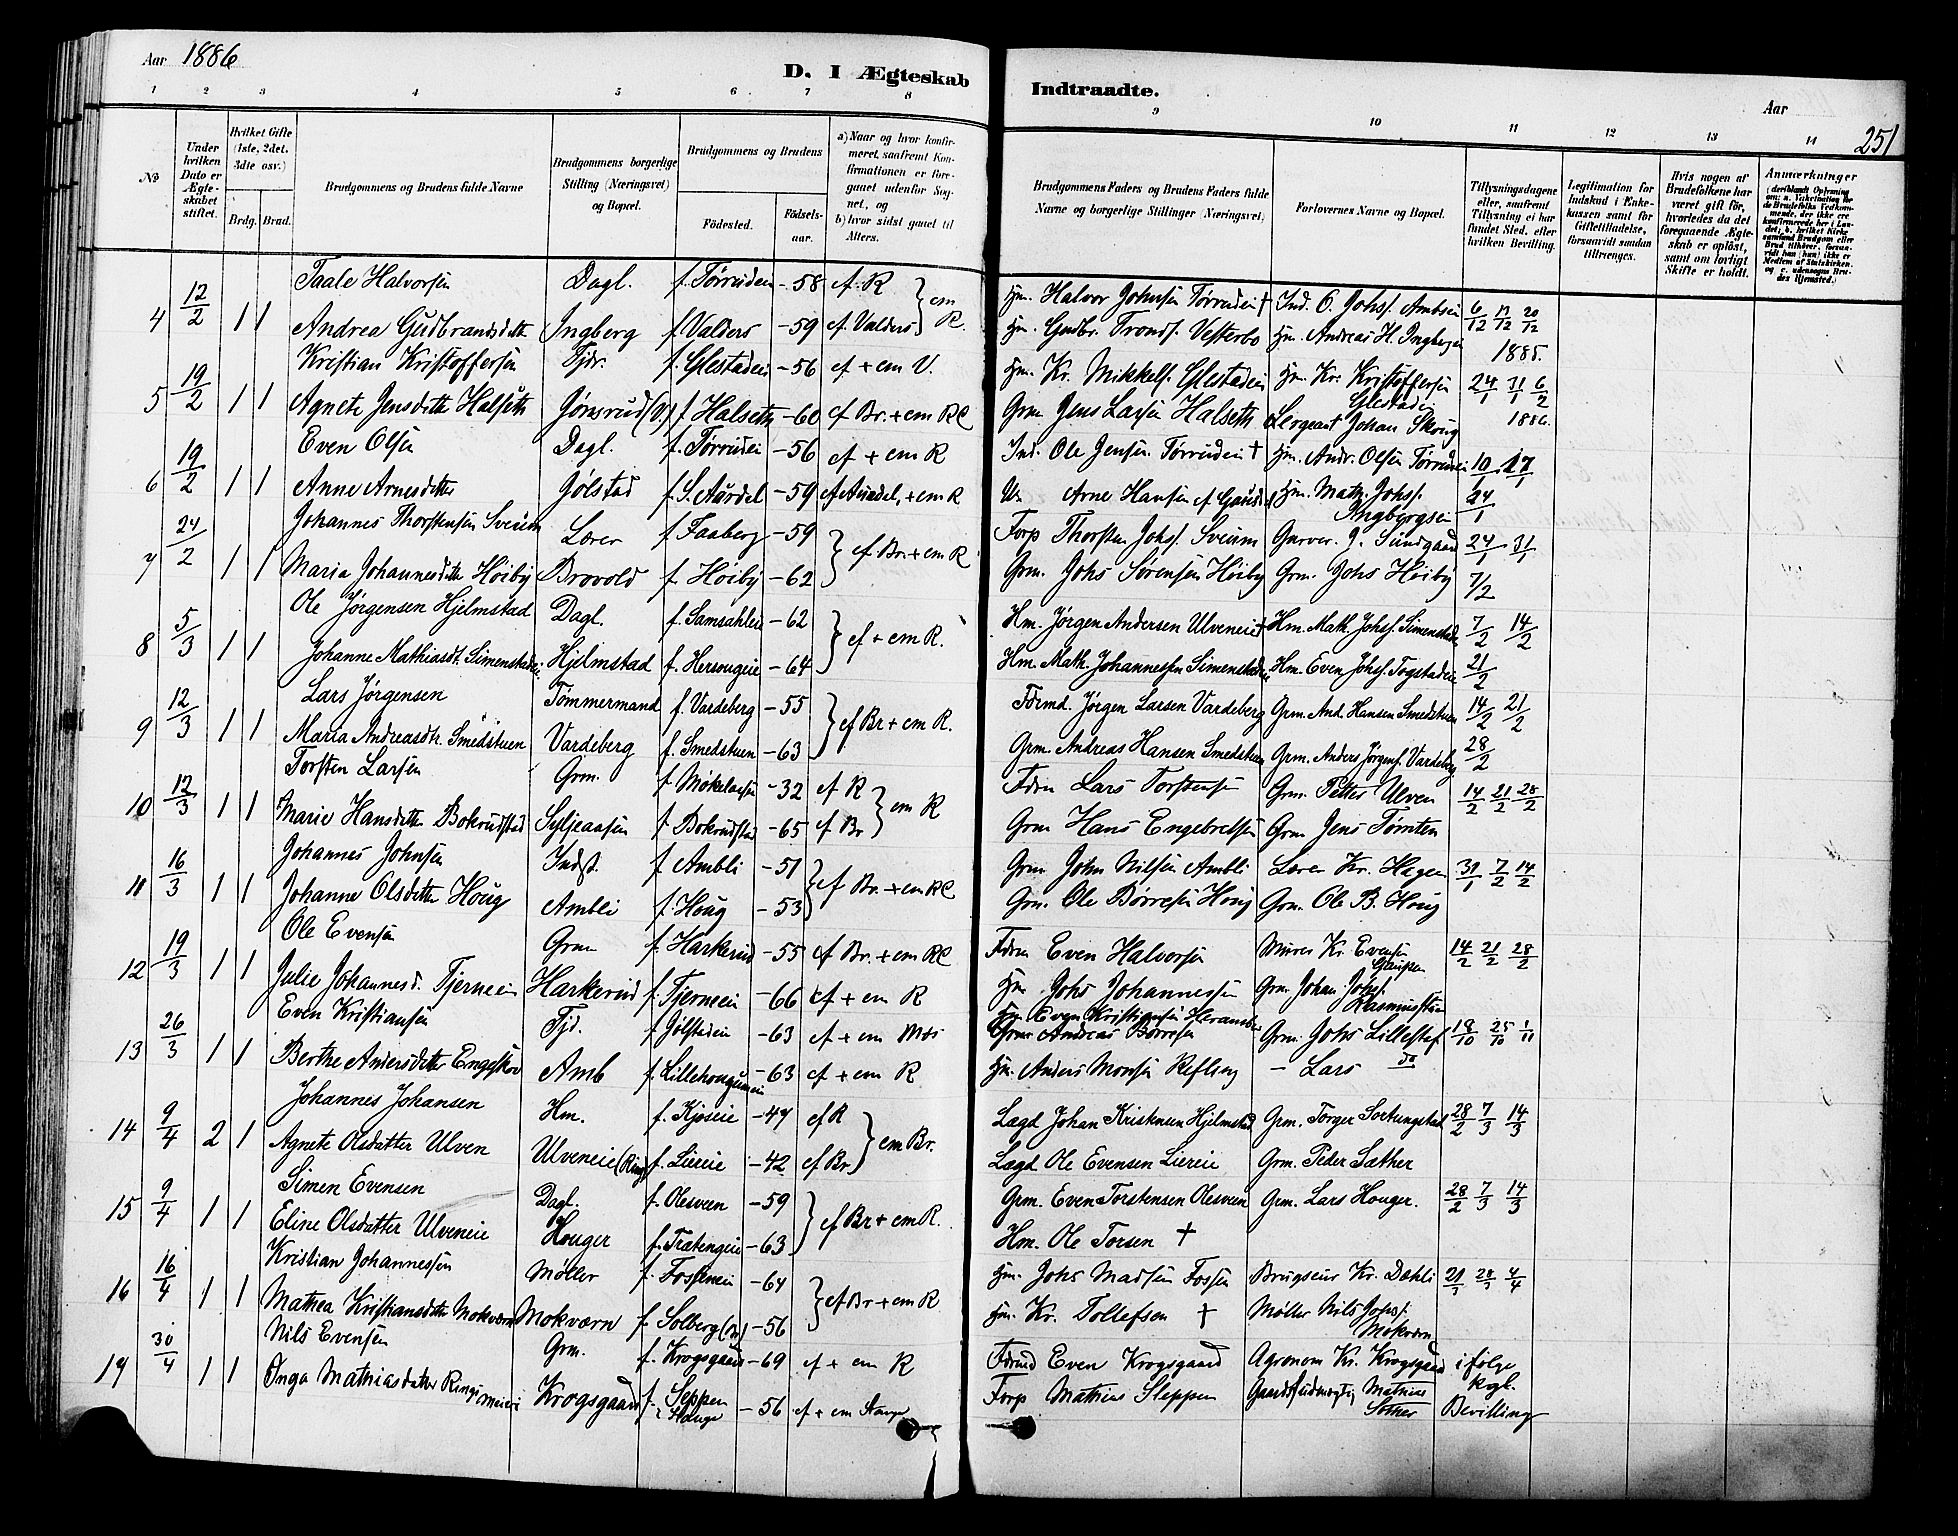 Aar 1886
D. I Ægteskab Indtraadte.
Aar
251
1 2 3 4 5 6 7 8 9 10 11 12 13 14
No
Under hvilken Dato er Ægteskabet stiftet.
Hvilket Gifte (1ste, 2det, 3die osv.)
Brdg. Brud.
Brudgommens og Brudens fulde Navne
Brudgommens borgerlige Stilling (Næringsvei) og Bopæl.
Brudgommens og Brudens
Fødested.
Fødselsaar.
a) Naar og hvor konfirmeret, saafremt Konfirmationen er foregaaet udenfor Sognet, og
b) hvor sidst gaaet til Alters.
Brudgommens Faders og Brudens Faders fulde Navne og borgerlige Stillinger (Næringsvei)
Forlovernes Navne og Bopæl.
Tillysningsdagene eller, saafremt Tillysning ei har fundet Sted, efter hvilken Bevilling.
Legitimation for Indskud i Enkekassen samt for Giftetilladelse, forsaavidt saadan tiltrænges.
Hvis nogen af Brudefolkene har været gift før, hvorledes da det foregaaende Ægteskab er opløst, samt om lovligt Skifte er holdt.
Anmærkninger
4 12/2 1 1 Taale Halvorsen Dagl. f. Tørrudei -58 cf. R Hm. Halvor Johnsen Tørrudei † Ind. O. Johss. Ambsei 6/12 13/12 20/12
Andrea Gudbrandsdtt Ingberg f Valders -59 cf. Valders } cm R. Hm. Gudbr. Tronds. Vesterbo Hm. Andreas H. Ingbergei 1885.
5 19/2 1 1 Kristian Kristoffersen Tjdr. f. Glestadein -56 cf + cm V. Hm. Kr. Mikkels. Glestadein Hm. Kr. Kristoffersen Glestadei 24/1 31/1 6/2
Agnete Jensdtt Halseth Jørnsrud (V.) f Halseth -60 cf Br. + cm R Grm. Jens Larsen Halseth Sergeant Johan Skoug 1886.
6 19/2 1 1 Even Olsen Dagl. f. Tørrudei -56 cf + cm R Ind. Ole Jensen Tørrudein † Hm. Andr. Olsen Tørrudei 10/1 17/1
Anne Arnesdatter Jølstad f. S. Aurdel -59 cf Aurdel, + cm R Arne Hansen Hm. Math. Johss. Ingbergsei 24/1
7 24/2 1 1 Johannes Thorstensen Sveum Lærer f Faaberg -59 Forp Thorsten Johs. Sveum Garver. J. Sundgaard 24/1 31/1
Maria Johannesdtt Høiby Brovold f. Høiby -62 } cf Br. + cm R Grm. Johs Sørensen Høiby Grm. Johs Høiby 7/2
8 5/3 1 1 Ole Jørgensen Hjelmstad Dagl. f. Samsahlei -62 Hm. Jørgen Andersen Ulveneie † Hm. Math. Johss. Simenstade 7/2 14/2
Johanne Mathiasdt. Simenstadei Hjelmstad f. Hersougeie -64 } cf + cm R. Hm. Math. Johannessen Simenstadein Hm. Even Johss. Togstadeie 21/2
9 12/3 1 1 Lars Jørgensen Tømmermand f. Vardeberg -55 Førmd. Jørgen Larsen Vardeberg Grm. And. Hansen Smedstuen 14/2 21/2
Maria Andreasdtr. Smedstuen Vardeberg f. Smedstuen -63 } cf Br + cm R. Grm. Andreas Hansen Smedstuen Grm. Anders Jørgens. Vardeberg 28/2
10 12/3 1 1 Torsten Larsen Grm. f Møkelaasen -32 cf R Fdrm Lars Torstensen Grm. Petter Ulven 14/2 21/2 28/2
Marie Hansdatter Bokrudstad Syljeaasen f Bokrudstad -65 cf Br } cm R Grm Hans Engebretsen Grm Jens Tømten
11 16/3 1 1 Johannes Johnsen Indst. f Ambli -51 Grm John Nilsen Ambli Lærer Kr. Hagen 31/1 7/2 14/2
Johanne Olsdatter Houg Ambli f. Houg -53 } cf Br. + cm R Grm. Ole Børresen Houg Grm. Ole B. Houg
12 19/3 1 1 Ole Evensen Grm f. Harkerud -55 cf Br. + cm R Fdrm Even Halvorsen Murer Kr. Evensen Gaupen 14/2 21/2 28/2
Julie Johannesd. Tjerneein Harkerud f Tjerneein -66 cf + cm R Hm Johs Johannessen Grm. Johan Johs. Rasmusstuen
13 26/3 1 1 Even Kristiansen Tjd. f Jølstadein -63 cf + cm Mos Hm Even Kristiansen Grm Andreas Børresen Grm. Johs Lillestaf 18/10 25/10 1/11
Berthe Andersdatter Engeskov Amb f. Lillehougumein -63 cf + cm R Hm. Anders Monsen Refling - Lars Do
14 9/4 2 1 Johannes Johansen Hm. f. Kjoseie -47 cf R Lægd Johan Kristensen Hjelmstad Grm. Torger Sortungstad 28/2 7/3 14/3
Agnete Olsdatter Ulven Ulveneie (Ring) f. Liereie -42 cf Br } cm Br. Lægd Ole Evensen Liereie Grm. Peder Sæther
15 9/4 1 1 Simen Evensen Dagl. f. Olesveen -59 Grm. Even Torstensen Olesveen Grm. Lars Houger. 28/2 7/3 14/3
Eline Olsdatter Ulveneie Houger f. Trætengeie -63 } cf Br + cm R. Hm. Ole Torsen †
16 16/4 1 1 Kristian Johannessen Møller f. Fossenei -64 Hm. Johs Madsen Fossen Brugseier Kr. Dæhli 21/3 28/3 4/4
Mathea Kristiansdatter Mokværn Mokværn f Solberg (N) -56 } cf Br + cm R Hm. Kr. Tollefsen † Møller Nils Johss. Mokværn
17 30/4 1 1 Nils Evensen Grm. f. Krogsgaard -69 cf + cm R Fdrmd Even Krogsgaard Agronom Kr. Krogsgaard i følge
Inga Mathiasdatter Ringsmeieri Krogsgaard f. Sleppen i Stange -56 cf + cm Stange Forp Mathias Sleppen Gaardsfuldmægtig Mathias Sæther kgl. Bevilling